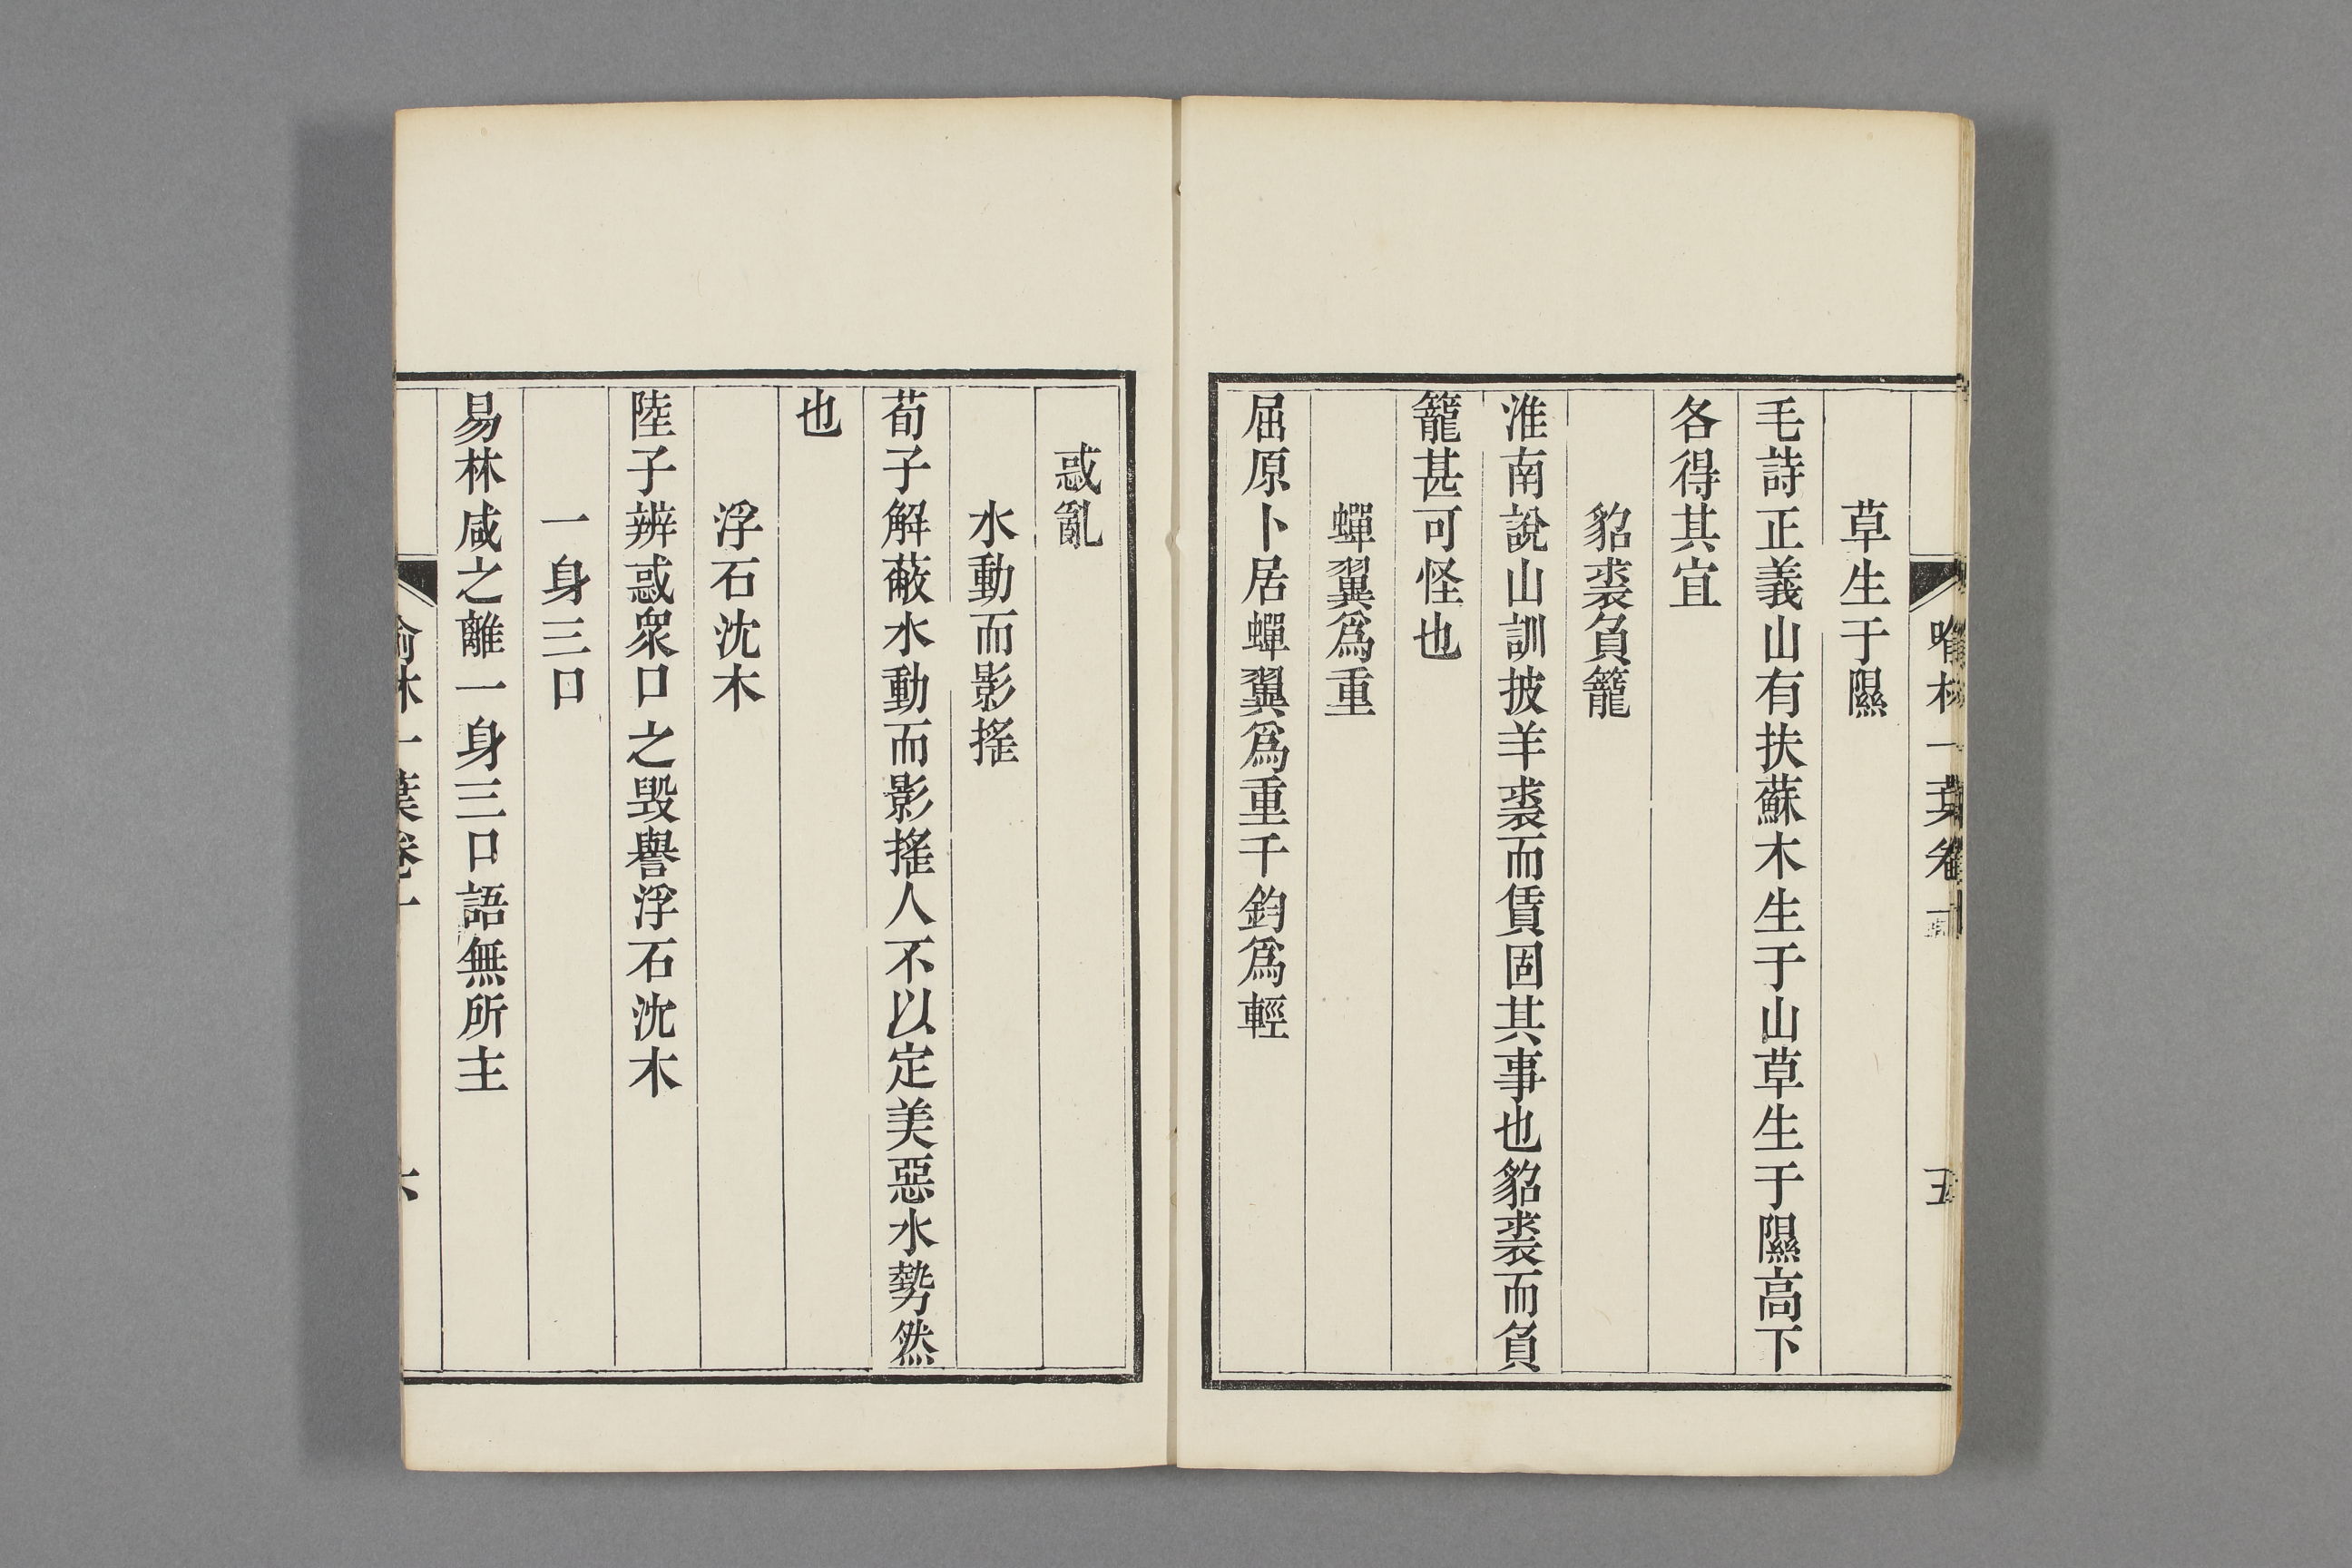 喻林一葉卷一
五
草生于隰
毛詩正義山有扶蘇木生于山草生于隰高下
各得其宜
貂裘負籠
淮南說山訓披羊裘而賃固其事也貂裘而負
籠甚可怪也
蟬翼爲重
屈原卜居蟬翼爲重千鈞爲輕
惑亂
水動而影搖
荀子解蔽水動而影搖人不以定美惡水勢然
也
浮石沈木
陸子辨惑衆口之毁譽浮石沈木
一身三口
易林咸之離一身三口語無所主
喻林一葉卷一
六